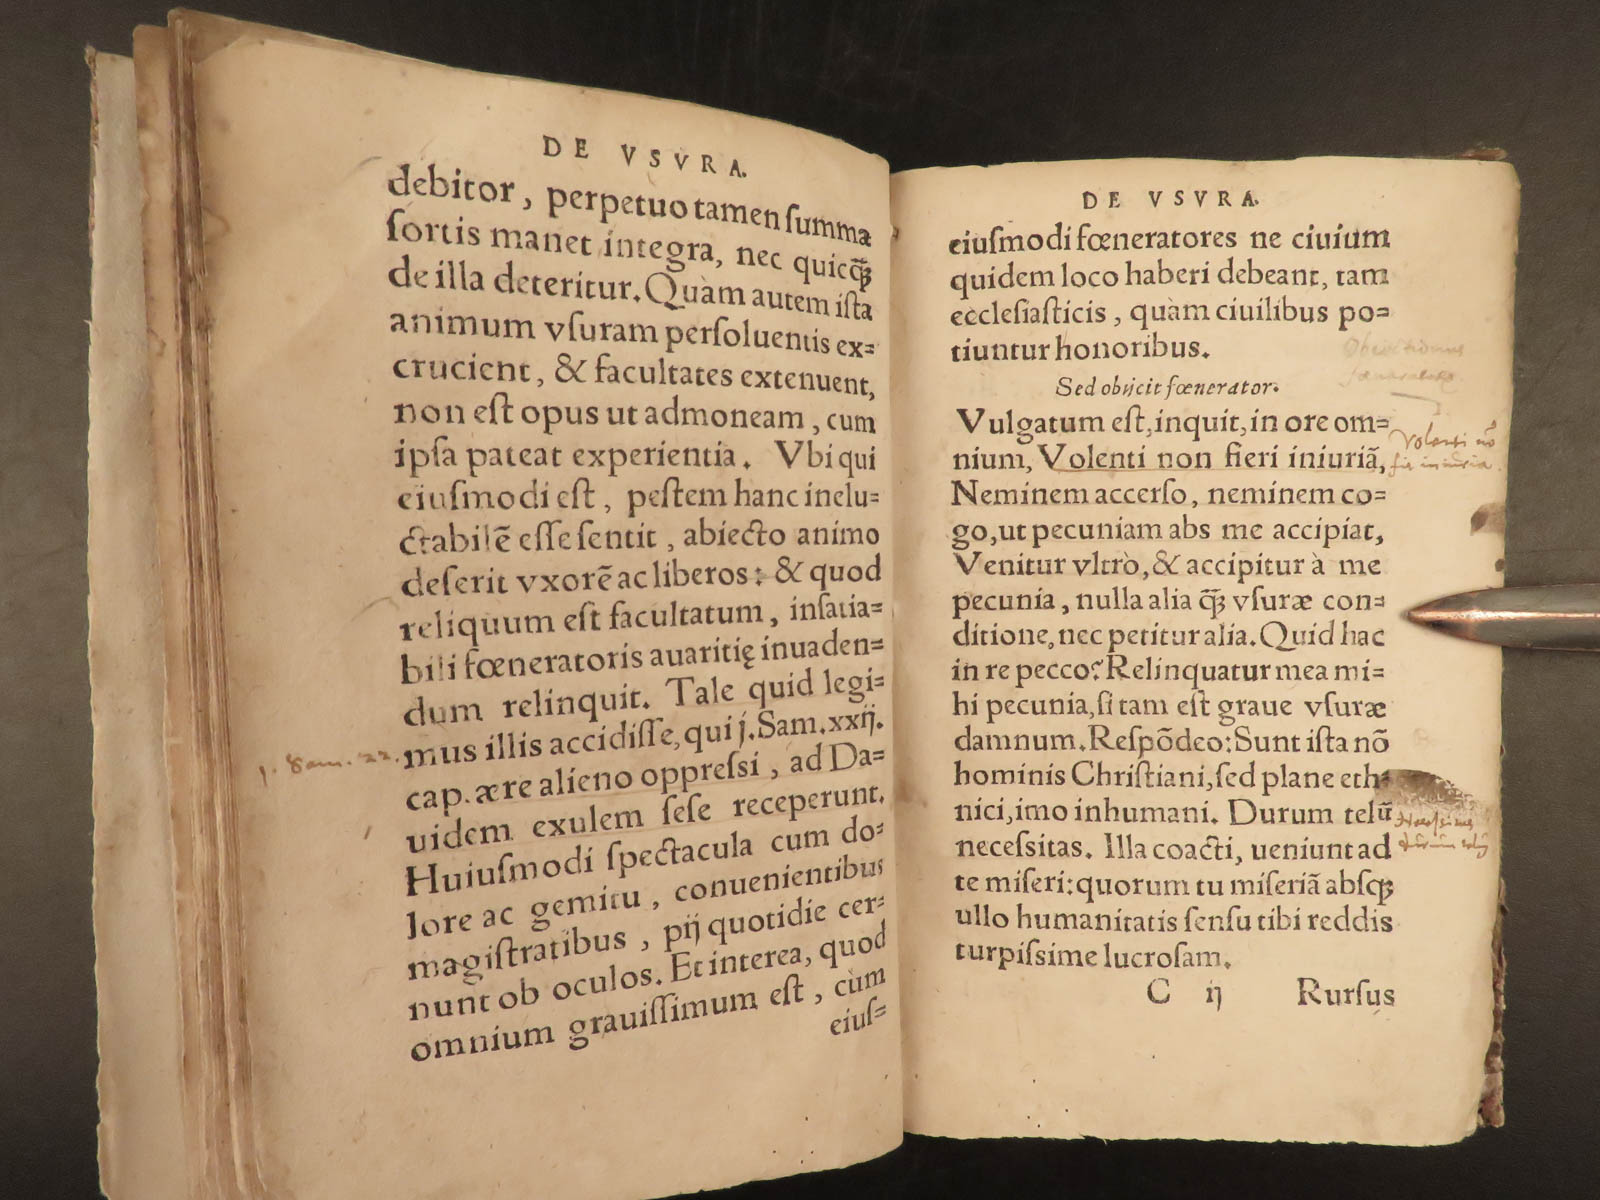 DE VSVRA.
debitor, perpetuo tamen ſumma
ſortis manet integra, nec quicq̃ꝫ
de illa deteritur. Quàm autem iſta
animum vſuram perſoluentis ex=
crucient, & facultates extenuent,
non eſt opus ut admoneam, cum
ipſa pateat experientia. Vbi qui
eiuſmodi eſt, peſtem hanc inelu=
ctabilē eſſe ſentit, abiecto animo
deſerit vxorē ac liberos: & quod
reliquum eſt facultatum, inſatia=
bili fœneratoris auaritię inuaden=
dum relinquit. Tale quid legi=
mus illis accidiſſe, qui j. Sam. xxij.
1. Sam. 22.
cap. ære alieno oppreſsi, ad Da=
uidem exulem ſeſe receperunt.
Huiuſmodi ſpectacula cum do=
lore ac gemitu, conuenientibus
magiſtratibus, pij quotidie cer=
nunt ob oculos. Et interea, quod
omnium grauiſſimum eſt, cùm
eiuſ=
DE VSVRA.
eiuſmodi fœneratores ne ciuium
quidem loco haberi debeant, tam
eccleſiaſticis, quàm ciuilibus po=
tiuntur honoribus.
Sed obijcit fœnerator.
Vulgatum eſt, inquit, in ore om=
nium, Volenti non fieri iniuriā,
Volenti nō
fit iniuria.
Neminem accerſo, neminem co=
go, ut pecuniam abs me accipiat,
Venitur vltrò, & accipitur à me
pecunia, nulla alia q̃ꝫ vſuræ con=
ditione, nec petitur alia. Quid hac
in re pecco? Relinquatur mea mi=
hi pecunia, ſi tam eſt graue vſuræ
damnum. Reſpōdeo: Sunt iſta nō
hominis Chriſtiani, ſed plane eth=
nici, imo inhumani. Durum telū
neceſsitas. Illa coacti, ueniunt ad
te miſeri: quorum tu miſeriā abſqꝫ
ullo humanitatis ſenſu tibi reddis
turpiſsime lucroſam.
C ij Rurſus